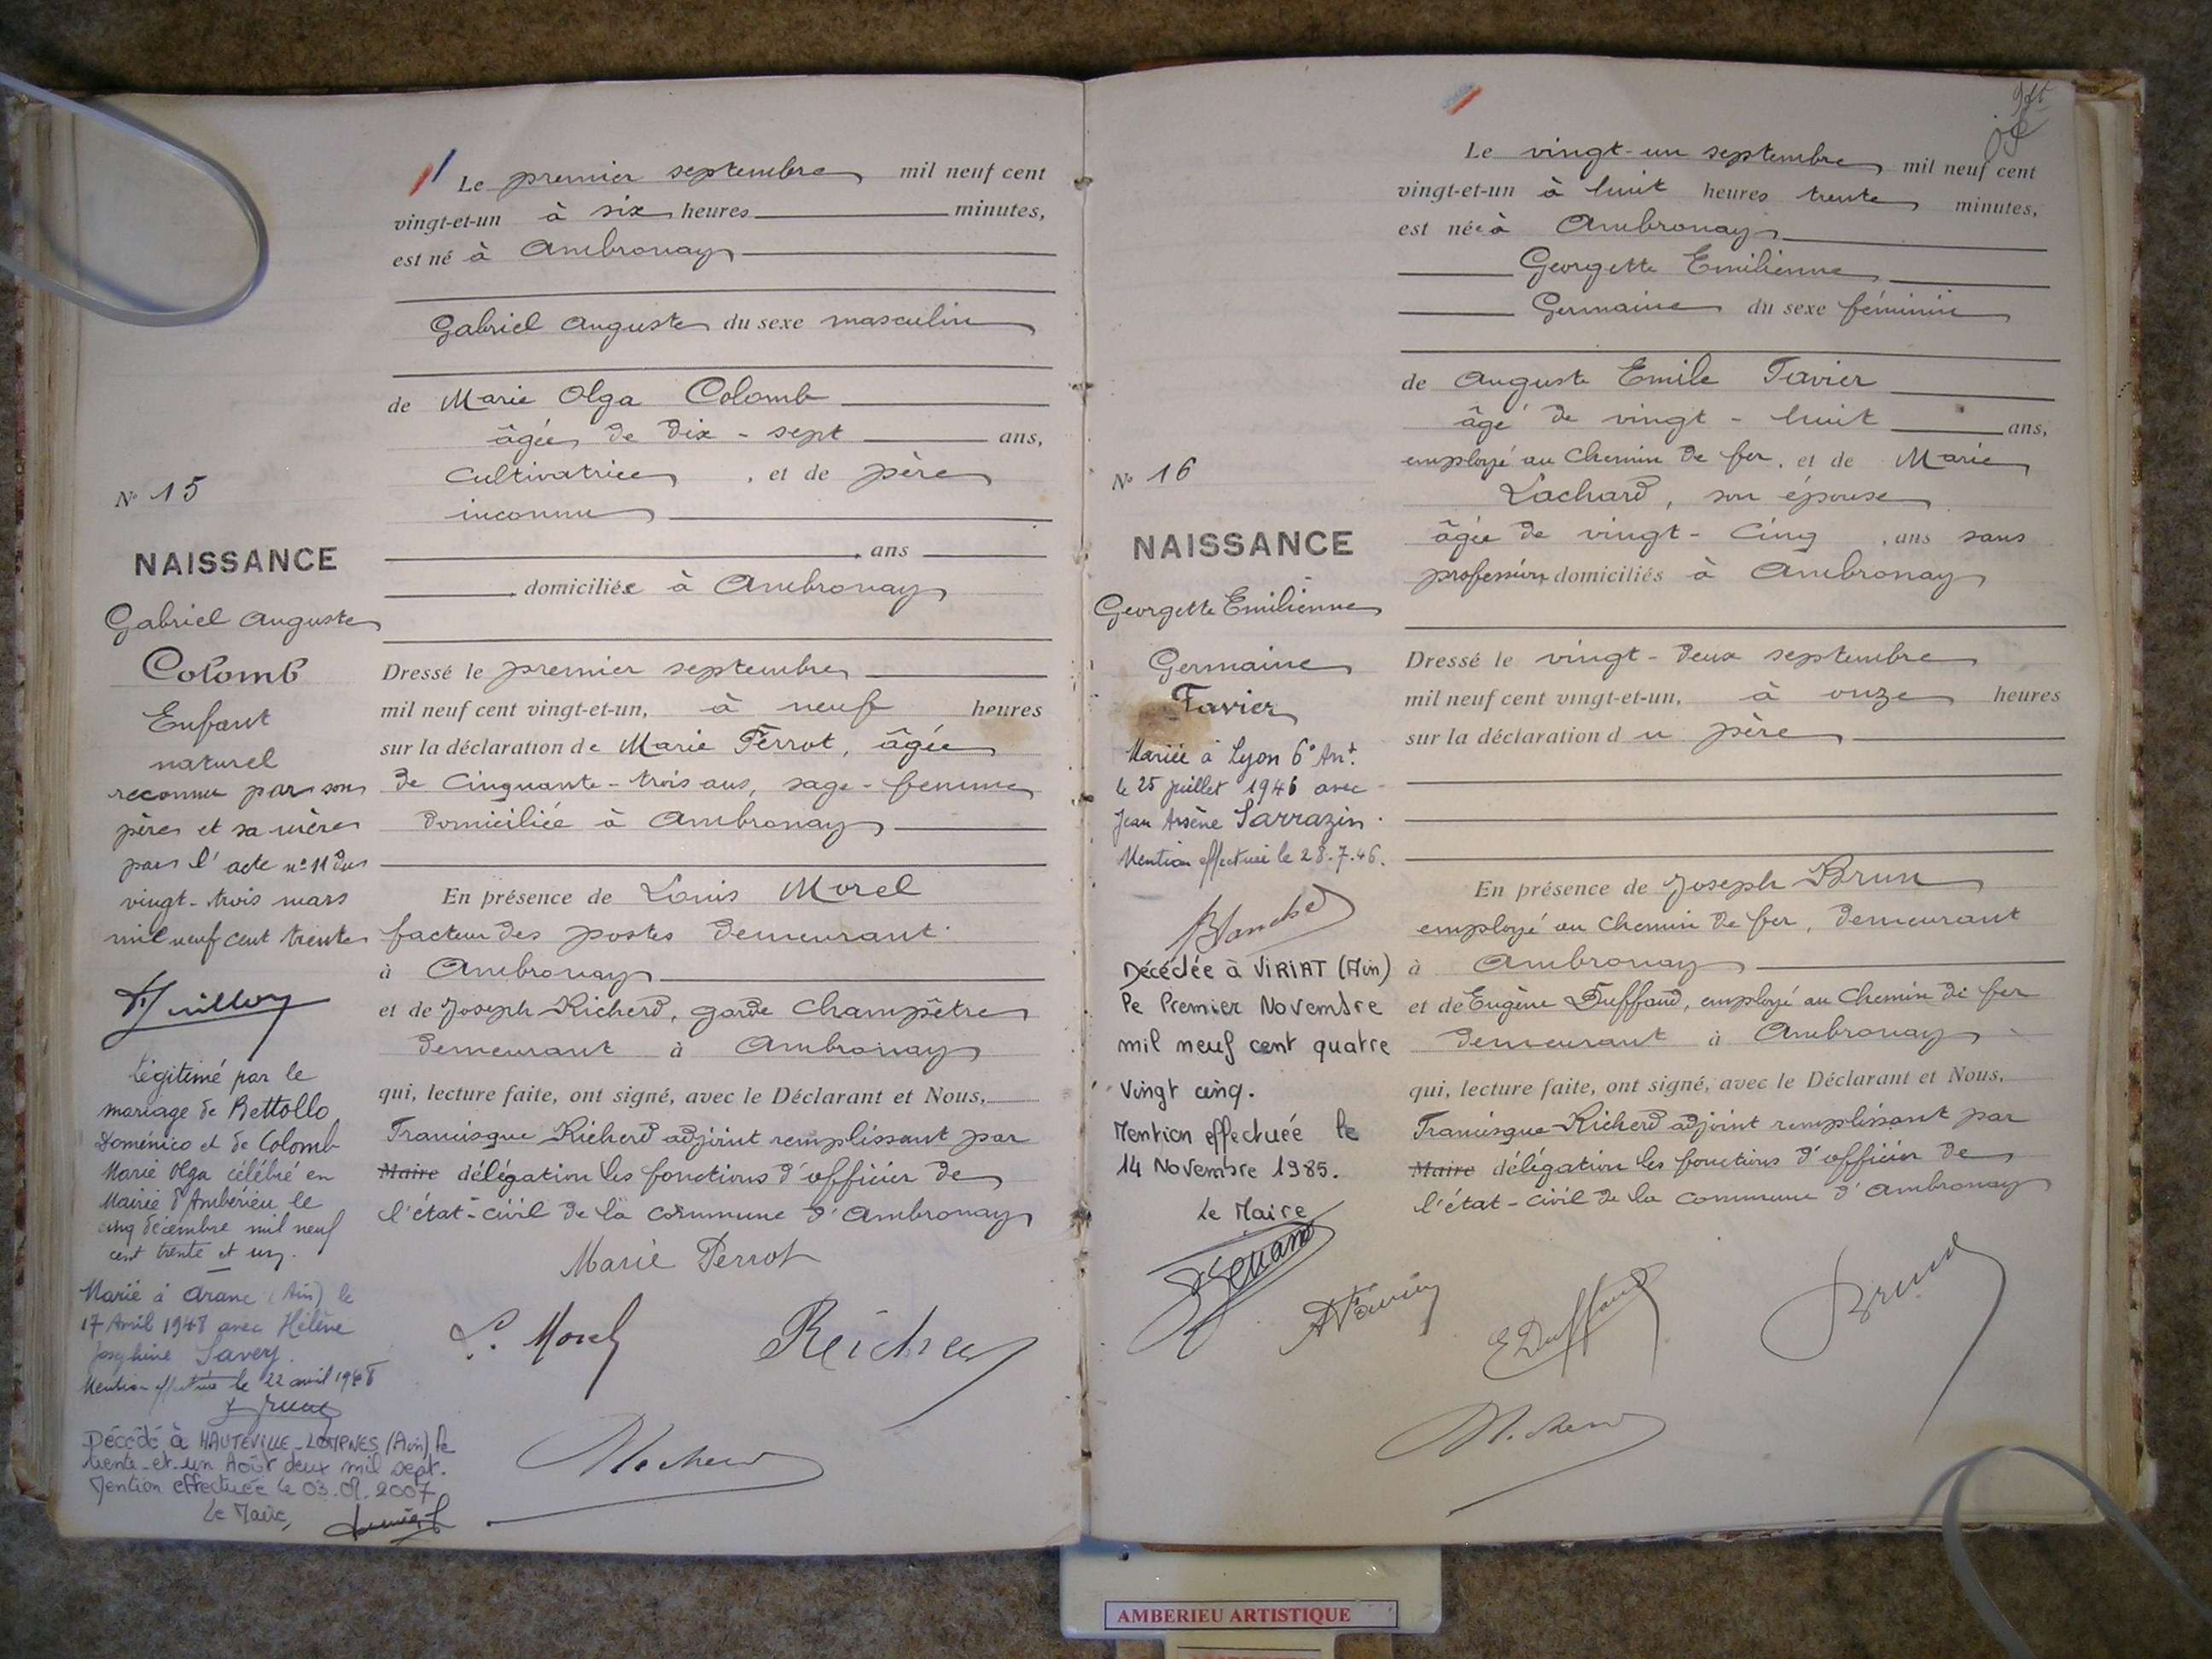 N° 15
NAISSANCE
Gabriel Auguste
Colomb
Enfant
naturel
reconnu par son
père et sa mère
par l'acte n° 11 du
vingt-trois mars
mil neuf cent trente
Légitimé par le
mariage de Rettollo
Doménico et de Colomb
Marie Olga célébré en
Mairie d'Ambérieu le
cinq décembre mil neuf
cent trente et un.
Marié à Aranc (Ain) le
17 Avril 1948 avec Hélène
Joséphine Savey.
Mention effectuée le 22 avril 1948
Décédé à HAUTEVILLE-LOMPNES (Ain) le
trente-et-un Août deux mil sept.
Mention effectuée le 03.09.2007
Le Maire,
Le premier septembre mil neuf cent
vingt-et-un à six heures minutes,
est né à Ambronay
Gabriel Auguste du sexe masculin
de Marie Olga Colomb
âgée de dix-sept ans,
cultivatrice, et de père
inconnu
ans
domiciliée à Ambronay
Dressé le premier septembre
mil neuf cent vingt-et-un, à neuf heures
sur la déclaration de Marie Perrot, âgée
de cinquante-trois ans, sage-femme
domiciliée à Ambronay
En présence de Louis Morel
facteur des postes demeurant
à Ambronay
et de Joseph Richerd, garde champêtre
demeurant à Ambronay
qui, lecture faite, ont signé, avec le Déclarant et Nous,
Francisque Richerd adjoint remplissant par
Maire délégation les fonctions d'officier de
l'état-civil de la commune d'Ambronay
Marie Perrot
L. Morel
N° 16
NAISSANCE
Georgette Emilienne
Germaine
Favier
Mariée à Lyon 6° Arrt.
le 25 juillet 1946 avec
Jean Arsène Sarrazin.
Mention effectuée le 28.7.46.
Décédée à VIRIAT (Ain)
le Premier Novembre
mil neuf cent quatre
vingt cinq.
Mention effectuée le
14 Novembre 1985.
Le Maire
Le vingt-un septembre mil neuf cent
vingt-et-un à huit heures trente minutes,
est née à Ambronay
Georgette Emilienne
Germaine du sexe féminin
de Auguste Emile Favier
âgé de vingt-huit ans,
employé au chemin de fer, et de Marie
Lachard, son épouse
âgée de vingt-cinq, ans sans
profession, domiciliés à Ambronay
Dressé le vingt-deux septembre
mil neuf cent vingt-et-un, à onze heures
sur la déclaration du père
En présence de Joseph Brun
employé au chemin de fer, demeurant
à Ambronay
et de Eugène Duffaud, employé au chemin de fer
demeurant à Ambronay
qui, lecture faite, ont signé, avec le Déclarant et Nous,
Francisque Richerd adjoint remplissant par
Maire délégation les fonctions d'officier de
l'état-civil de la commune d'Ambronay
A Favier
E Duffaud
Brun
AMBERIEU ARTISTIQUE